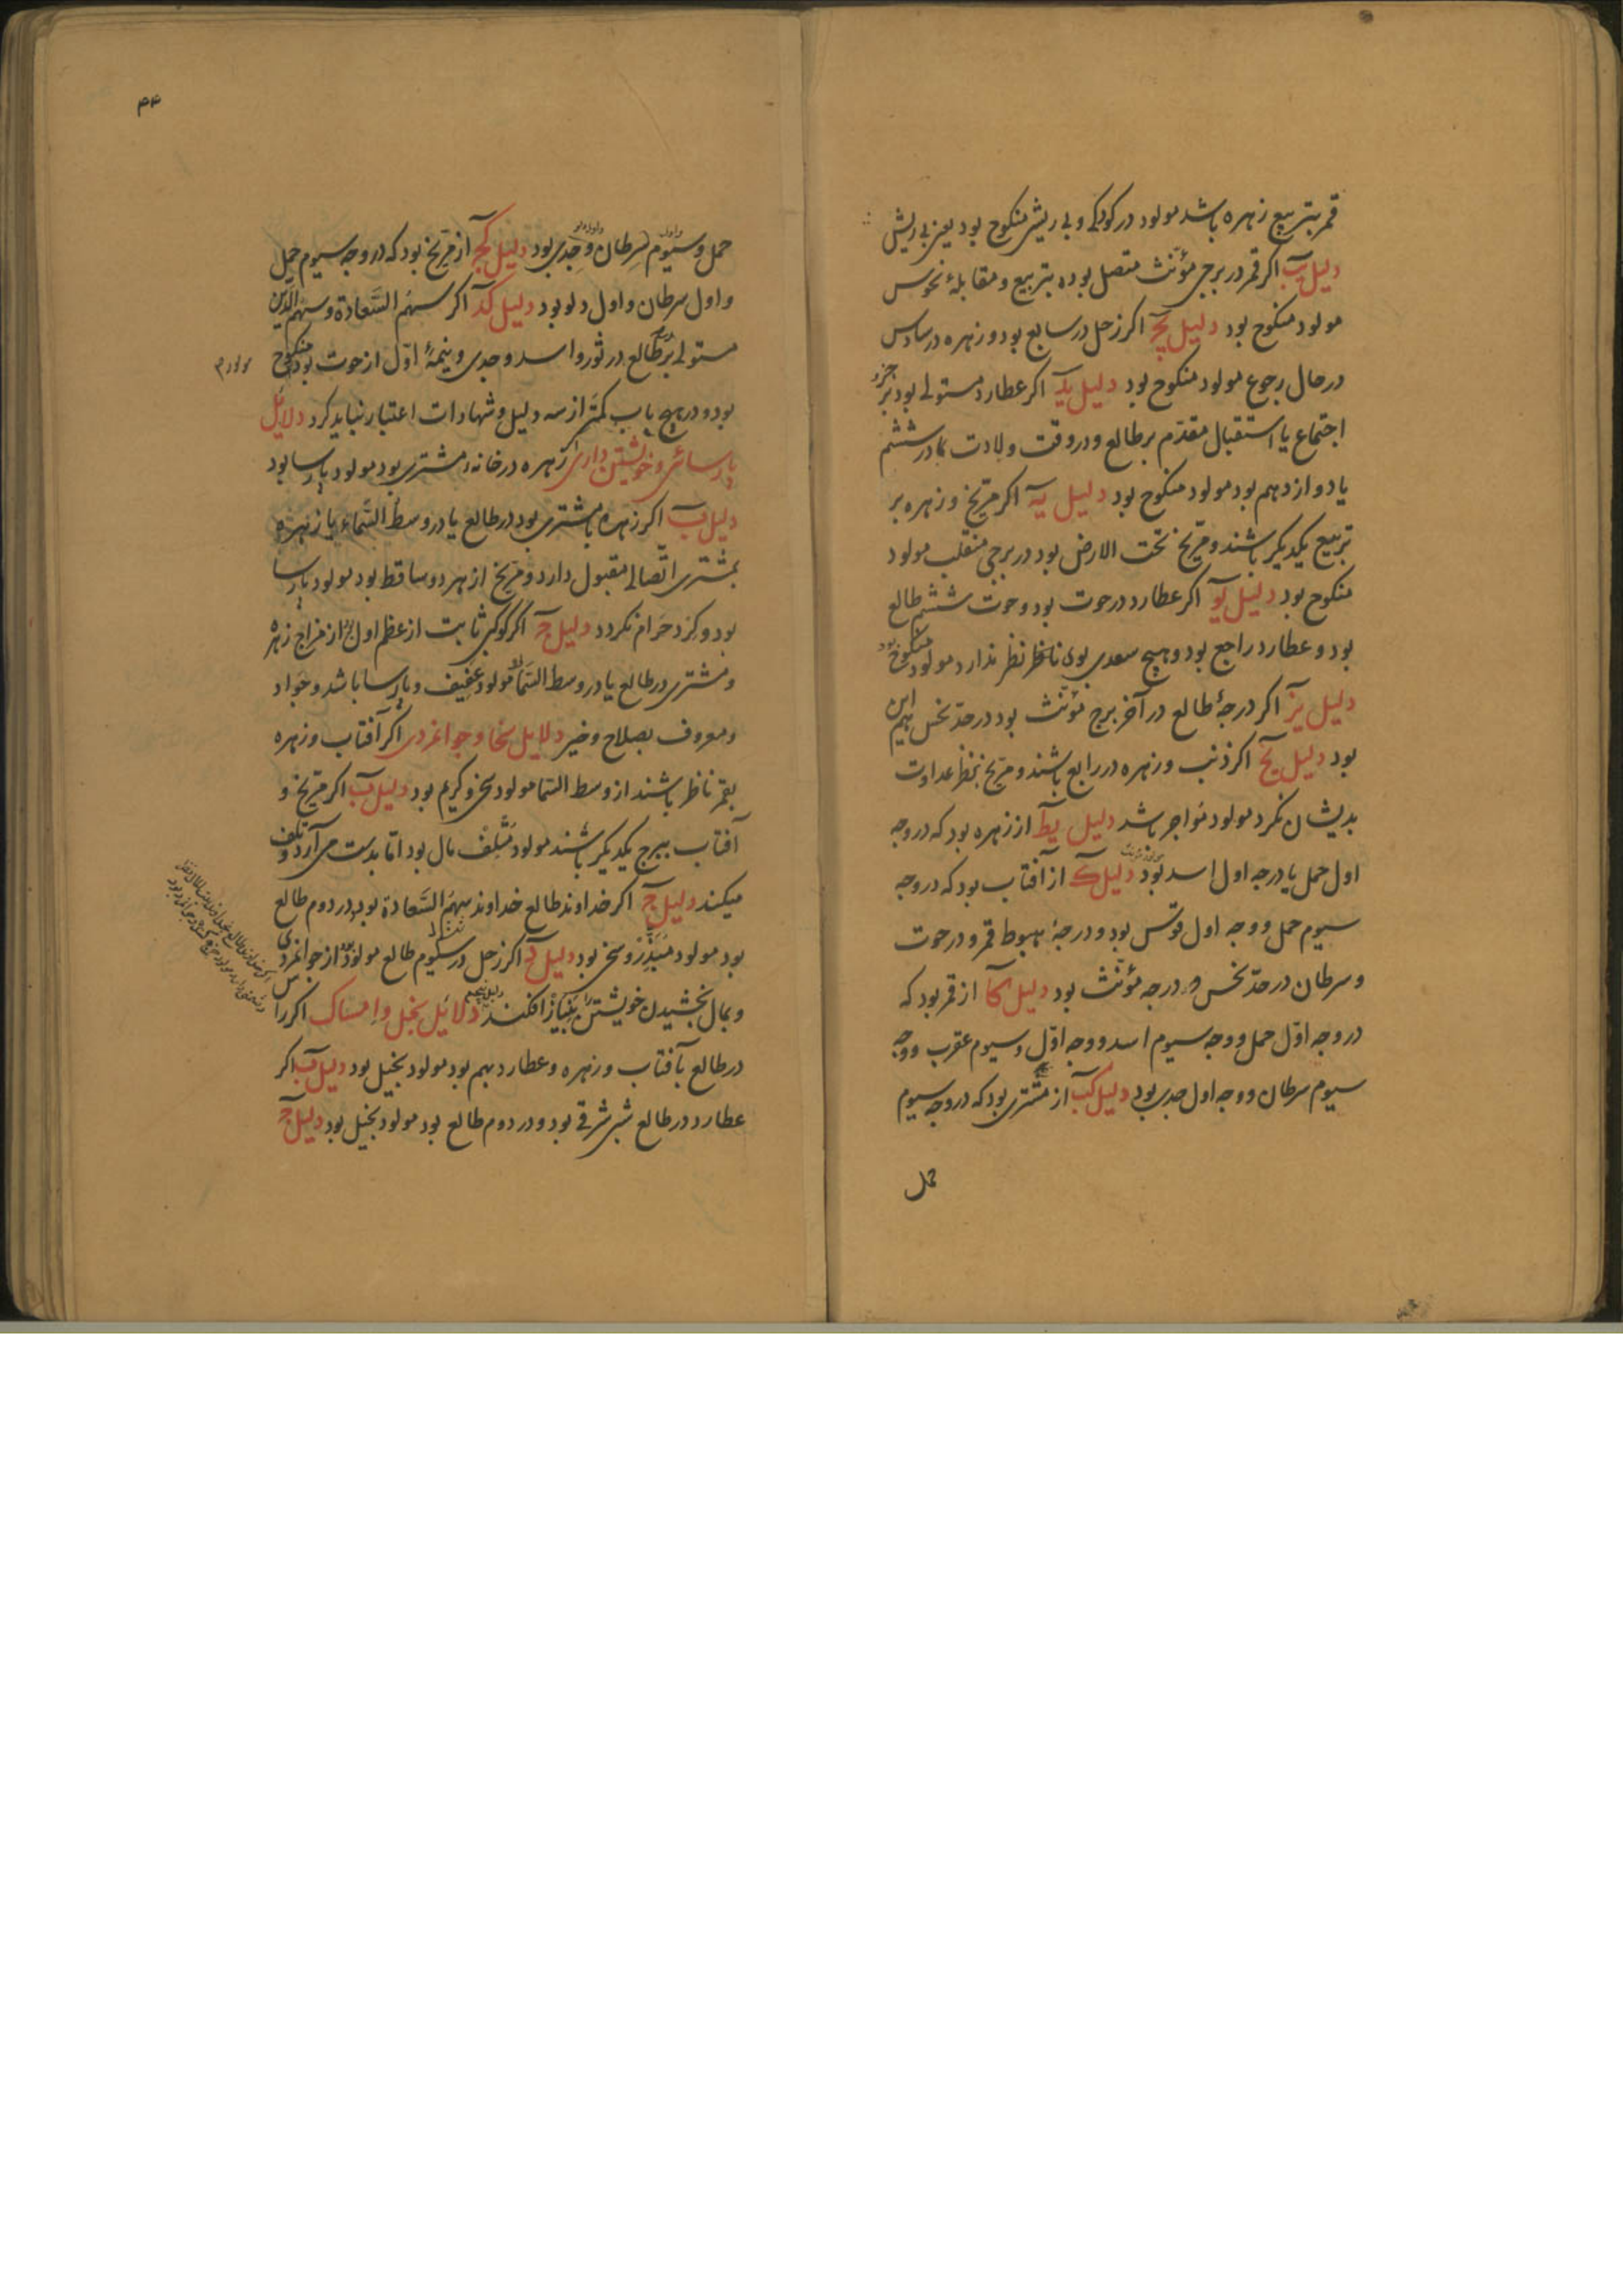 قمر بتربیع زهره باشد مولود در کودکی و بی ریشی منکوح بود یعنی بی ریش
دلیل یب اکر قمر در برجی مؤنث متصل بود بتربیع و مقابلهٔ نحوس
مولود منکوح بود دلیل یج اکر زحل در سابع بود و زهره در سادس
در حال رجوع مولود منکوح بود دلیل ید اکر عطارد مستولی بود بر جزو
اجتماع یا استقبال مقدّم بر طالع و در وقت ولادت در ششم
یا دوازدهم بود مولود منکوح بود دلیل یه اکر مرّیخ و زهره بر
تربیع یکدیکر باشند و مرّیخ تحت الارض بود در برجی منقلب مولود
منکوح بود دلیل یو اکر عطارد در حوت بود و حوت ششم طالع
بود و عطارد راجع بود و هیچ سعدی بوی ناظر نظر ندارد مولود منکوح بود
دلیل یز اکر درجهٔ طالع در آخر برج مؤنث بود در حدّ نحس هم این
بود دلیل یح اکر ذنب و زهره در رابع باشند و مرّیخ بنظر عداوت
بدیشان نکرد مولود مواجر باشد دلیل یط از زهره بود که در وجه
اول حمل یا درجه اول اسد بود دلیل ک از آفتاب بود که در وجه
سیوم حمل و وجه اول قوس بود و درجهٔ هبوط قمر و در حوت
و سرطان در حدّ نحس و درجه مؤنث بود دلیل کا از قمر بود که
در وجه اوّل حمل و وجه سیوم اسد و وجه اوّل و سیوم عقرب و وجه
سیوم سرطان و وجه اول جدی بود دلیل کب از مشتری بود که در وجه سیوم
حمل
۴۴
حمل و سیوم سرطان و جدی بود دلیل کج از مرّیخ بود که در وجه سیوم حمل
و اول سرطان و اول دلو بود دلیل کد اکر سهم السّعادة و سهم الدین
مستولی بر طالع در ثور و اسد و جدی و نیمهٔ اوّل از حوت بود منکوح
مولود م
بود و در هیچ باب کمتر از سه دلیل و شهادات اعتبار نباید کرد دلائل
پارسائی و خویشتن داری زهره در خانهٔ مشتری بود مولود پارسا بود
دلیل ب اکر زهره با مشتری بود در طالع یا در وسط السّماء یا زهره
بمشتری اتّصالی مقبول دارد و مرّیخ از هر دو ساقط بود مولود پارسا
بود و کرد حرام نکردد دلیل ج اکر کوکبی ثابت از عظم اول بود از مزاج زهره
و مشتری در طالع یا در وسط السّما مولود عفیف و پارسا باشد و جواد
و معروف بصلاح و خیر دلایل سخا و جوانمردی اکر آفتاب و زهره
بقمر ناظر باشند از وسط السّما مولود سخی و کریم بود دلیل ب اکر مرّیخ و
آفتاب ببرج یکدیکر باشند مولود متلف مال بود امّا بدست می آرد و تلف
میکند دلیل ج اکر خداوند طالع خداوند سهم السّعادة بود در دوم طالع
بود مولود مبذر و سخی بود دلیل د اکر زحل در سیوم طالع مولود بود از جوانمردی
و بمال بخشیدن خویشتن بنیاز افکند دلائل بخل و امساک اکر راس
در طالع با آفتاب و زهره و عطارد بهم بود مولود بخیل بود دلیل ب اکر
عطارد در طالع شبی شرقی بود و در دوم طالع بود مولود بخیل بود دلیل ج